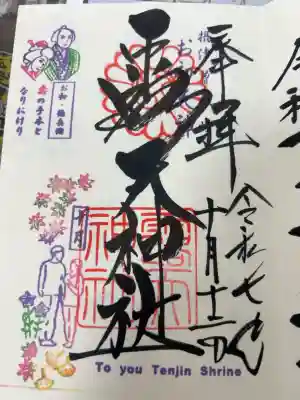 奉拝
令和七年
十月十二日
露天神社
お初 徳兵衛
恋の手本と
なりにけり
To you Tenjin Shrine
令和